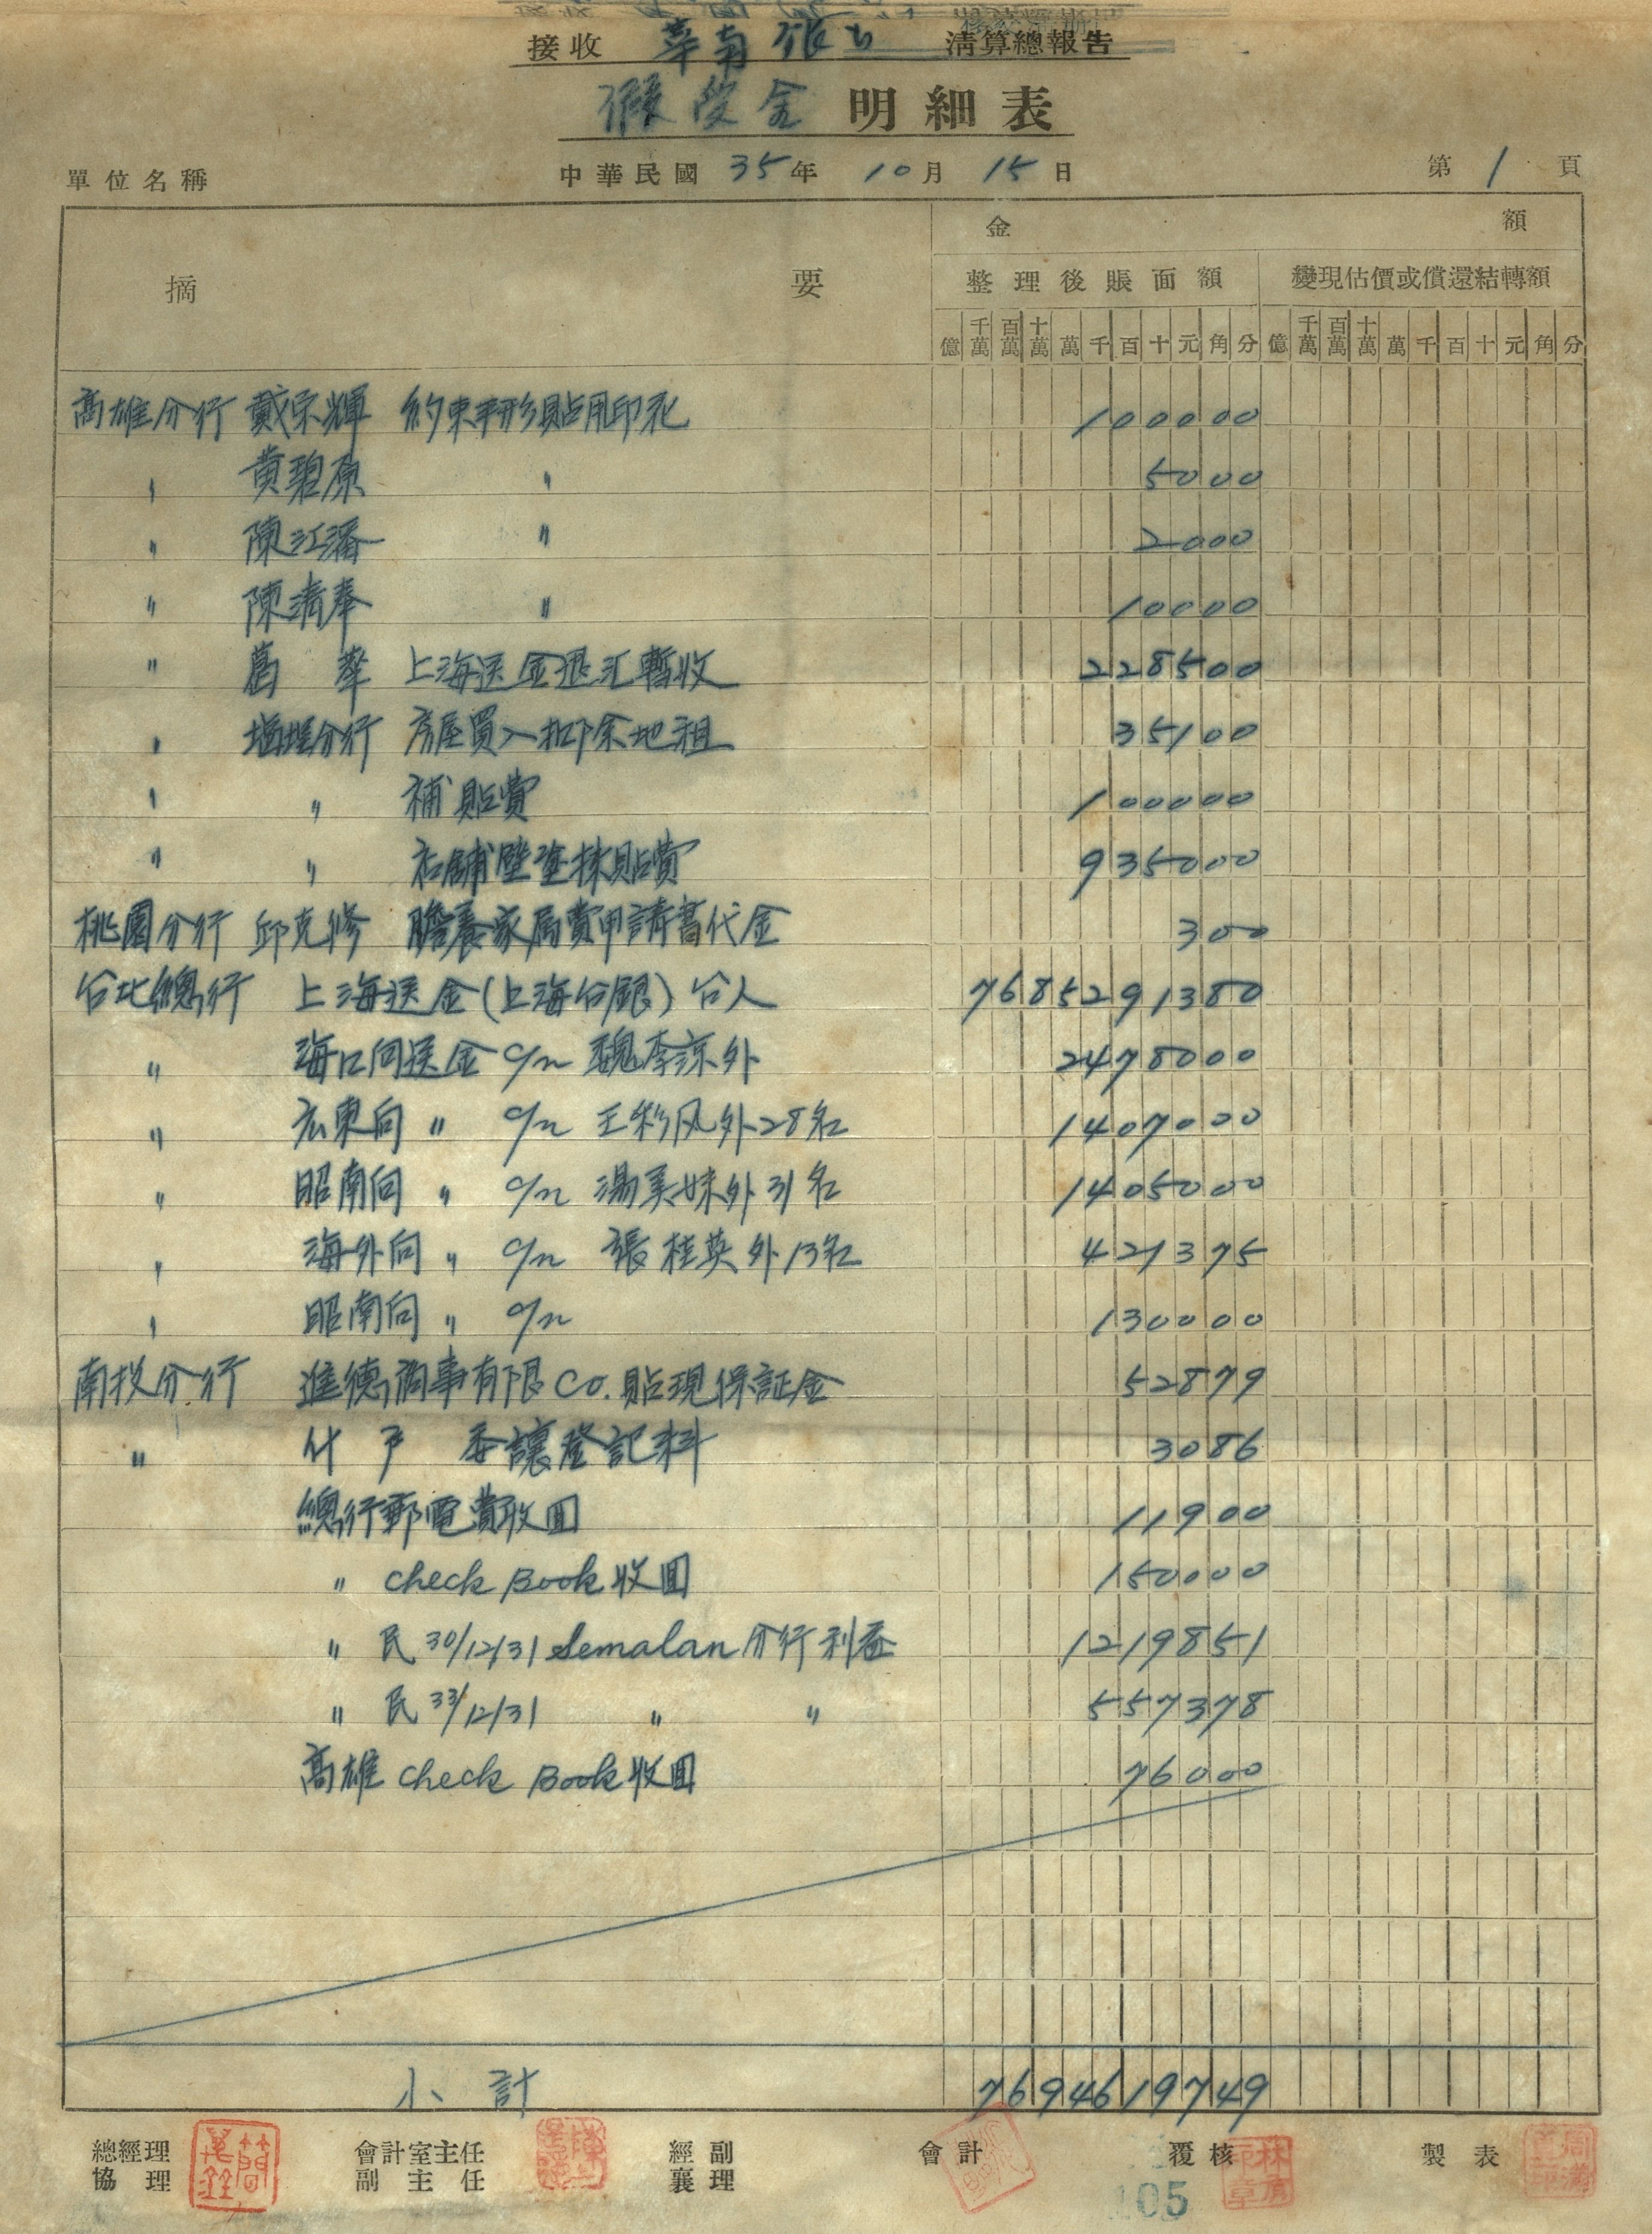 接收 華南銀行 清算總報告
假受金 明細表
單位名稱 中華民國 35年 10月 15日 第 1 頁
摘 要 金 額
整理後賬面額 變現估價或償還結轉額
億 千萬 百萬 十萬 萬 千 百 十 元 角 分 億 千萬 百萬 十萬 萬 千 百 十 元 角 分
高雄分行 戴宗輝 約束手形貼用印花 100000
〃 黄碧原 〃 5000
〃 陳江潘 〃 2000
〃 陳清奉 〃 10000
〃 萬華 上海送金退汇暫收 228500
〃 塩埕分行 房屋買入扣除地租 35100
〃 〃 補貼費 100000
〃 〃 店舖壁塗抹貼費 935000
桃園分行 邱克修 贍養家屬費申請書代金 300
台北總行 上海送金(上海台銀)台人 7685291380
〃 海口向送金 a/n 魏李涼外 2478000
〃 広東向 〃 a/n 王彩风外28名 1407000
〃 昭南向 〃 a/n 湯美妹外31名 1405000
〃 海外向 〃 a/n 張桂英外13名 421375
〃 昭南向 〃 a/n 130000
南投分行 進德商事有限Co.貼現保証金 52879
〃 什戶 委讓登記料 3086
總行郵電費收回 11900
〃 check Book收回 150000
〃 民30/12/31 Semalan分行利益 1219851
〃 民33/12/31 〃 〃 557378
高雄 check Book收回 76000
小計 7694619749
總經理 會計室主任 經副 會計 覆核 製表
協理 副主任 襄理
105